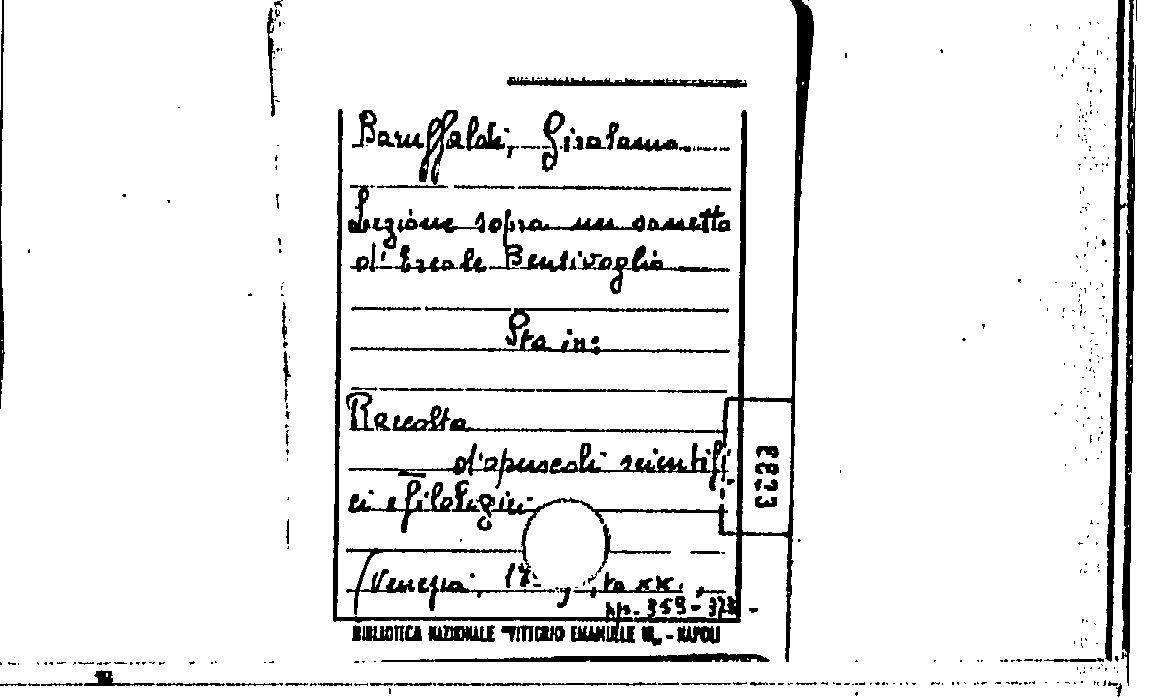 Baruffaldi, Girolamo.
Lezione sopra un sonetto
d'Ercole Bentivoglio
Sta in:
Raccolta
d'opuscoli scientifi-
ci e filologici
(Venezia, 17 , to xx. ,
pp. 359-373
BIBLIOTECA NAZIONALE "VITTORIO EMANUELE III„ - NAPOLI